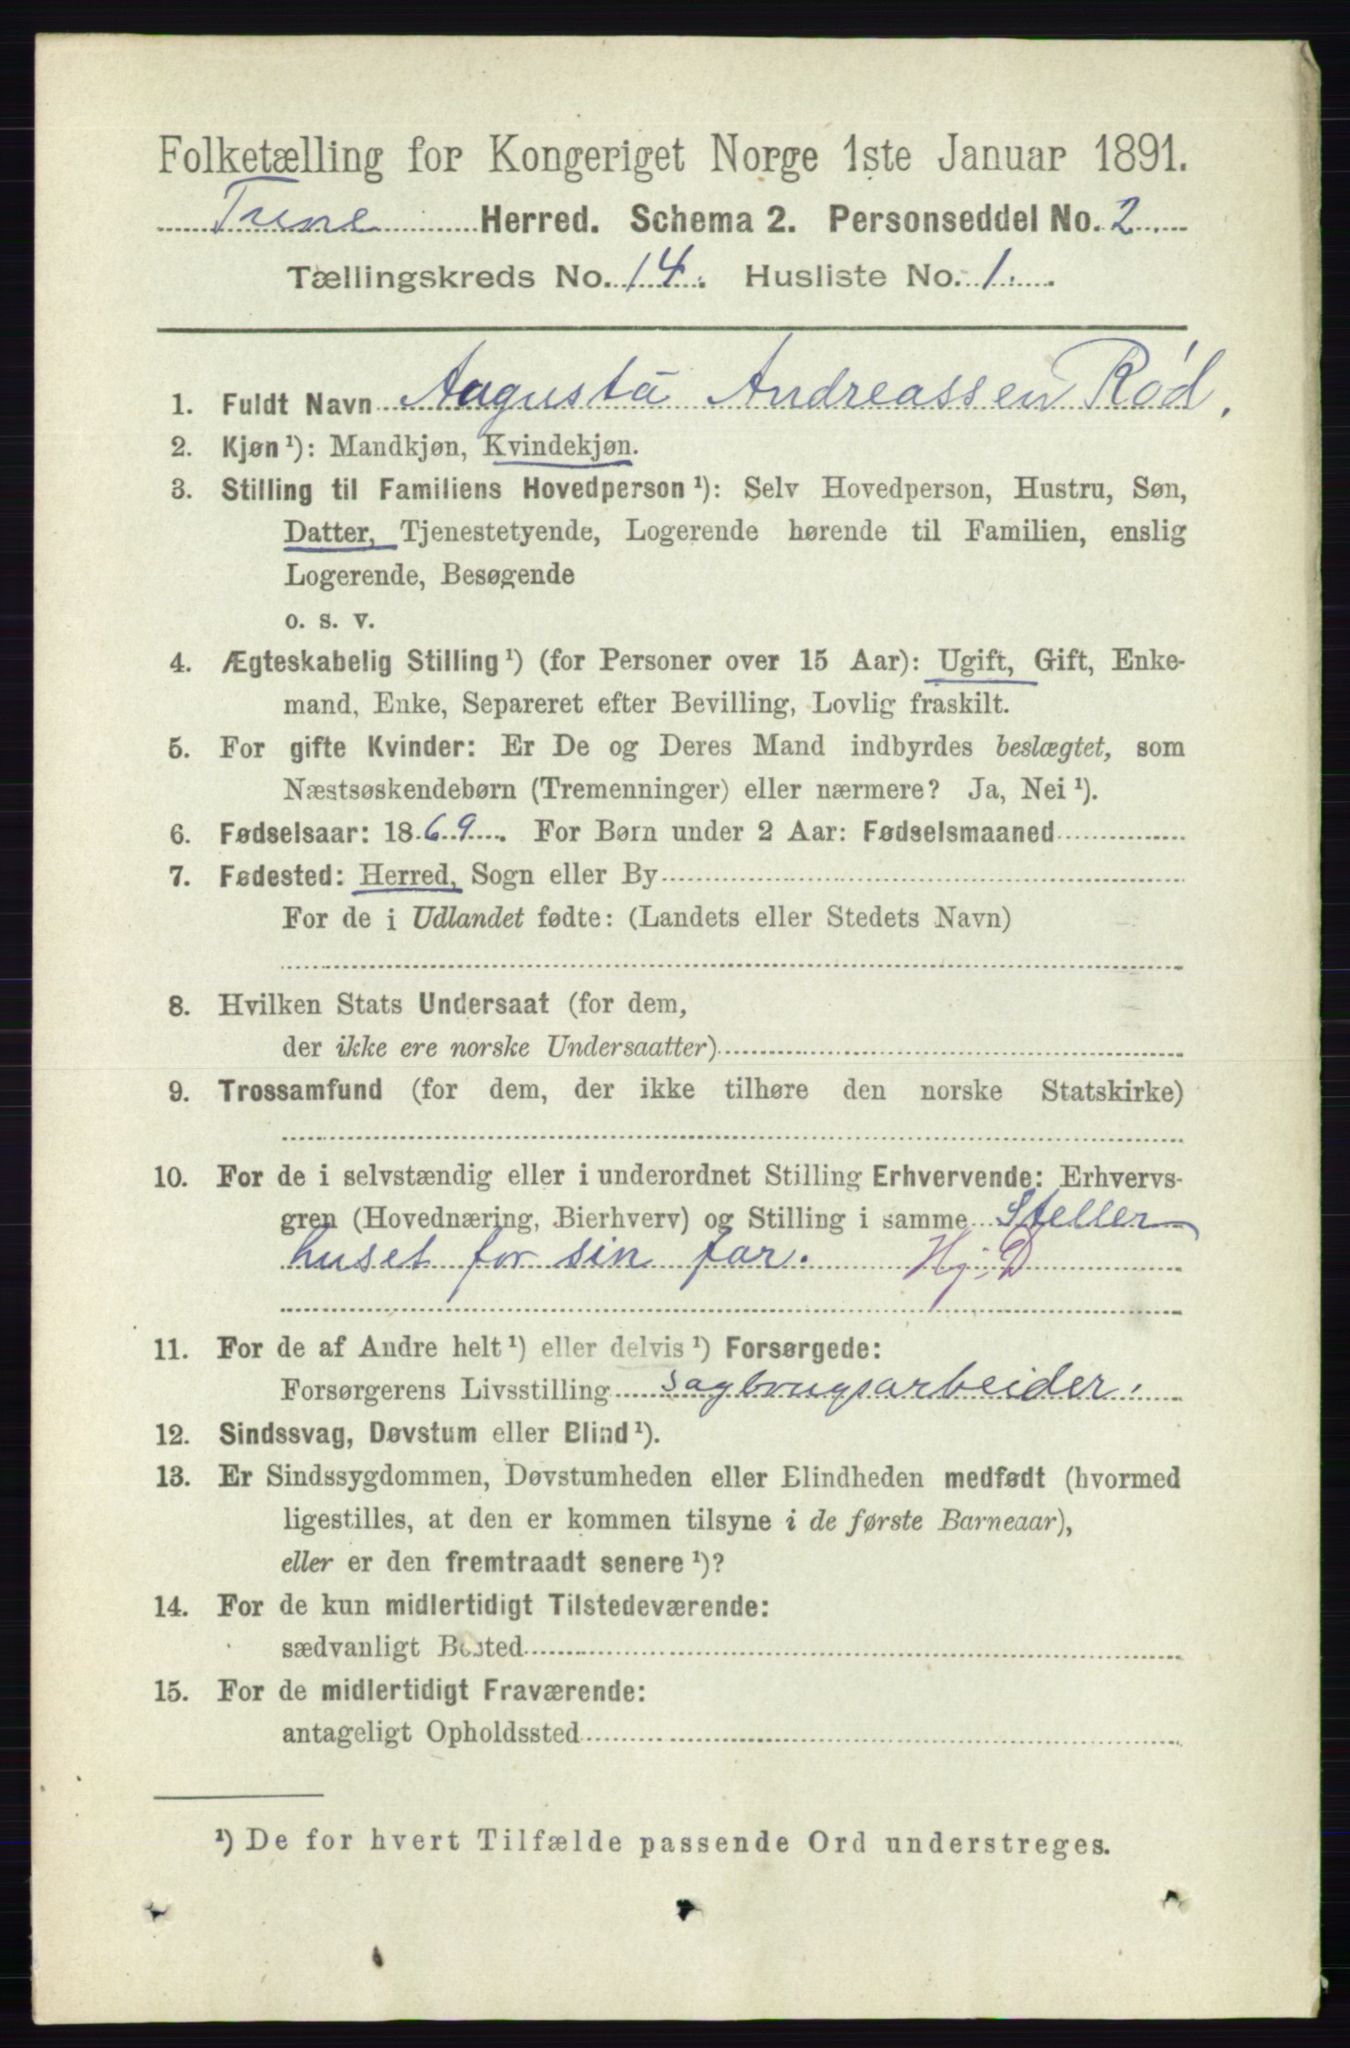 Folketælling for Kongeriget Norge 1ste Januar 1891.
Tune Herred. Schema 2. Personseddel No. 2
Tællingskreds No. 14. Husliste No. 1.
1. Fuldt Navn Augusta Andreassen Rød.
2. Kjøn¹): Mandkjøn, Kvindekjøn.
3. Stilling til Familiens Hovedperson¹): Selv Hovedperson, Hustru, Søn,
Datter, Tjenestetyende, Logerende hørende til Familien, enslig
Logerende, Besøgende
o. s. v.
4. Ægteskabelig Stilling¹) (for Personer over 15 Aar): Ugift, Gift, Enke-
mand, Enke, Separeret efter Bevilling, Lovlig fraskilt.
5. For gifte Kvinder: Er De og Deres Mand indbyrdes beslægtet, som
Næstsøskendebørn (Tremenninger) eller nærmere? Ja, Nei¹).
6. Fødselsaar: 1869. For Børn under 2 Aar: Fødselsmaaned
7. Fødested: Herred, Sogn eller By
For de i Udlandet fødte: (Landets eller Stedets Navn)
8. Hvilken Stats Undersaat (for dem,
der ikke ere norske Undersaatter)
9. Trossamfund (for dem, der ikke tilhøre den norske Statskirke)
10. For de i selvstændig eller i underordnet Stilling Erhvervende: Erhvervs-
gren (Hovednæring, Bierhverv) og Stilling i samme Steller
huset for sin far. Hj. D
11. For de af Andre helt¹) eller delvis¹) Forsørgede:
Forsørgerens Livsstilling sagbrugsarbeider.
12. Sindssvag, Døvstum eller Blind¹).
13. Er Sindssygdommen, Døvstumheden eller Blindheden medfødt (hvormed
ligestilles, at den er kommen tilsyne i de første Barneaar),
eller er den fremtraadt senere¹)?
14. For de kun midlertidigt Tilstedeværende:
sædvanligt Bosted
15. For de midlertidigt Fraværende:
antageligt Opholdssted
¹) De for hvert Tilfælde passende Ord understreges.